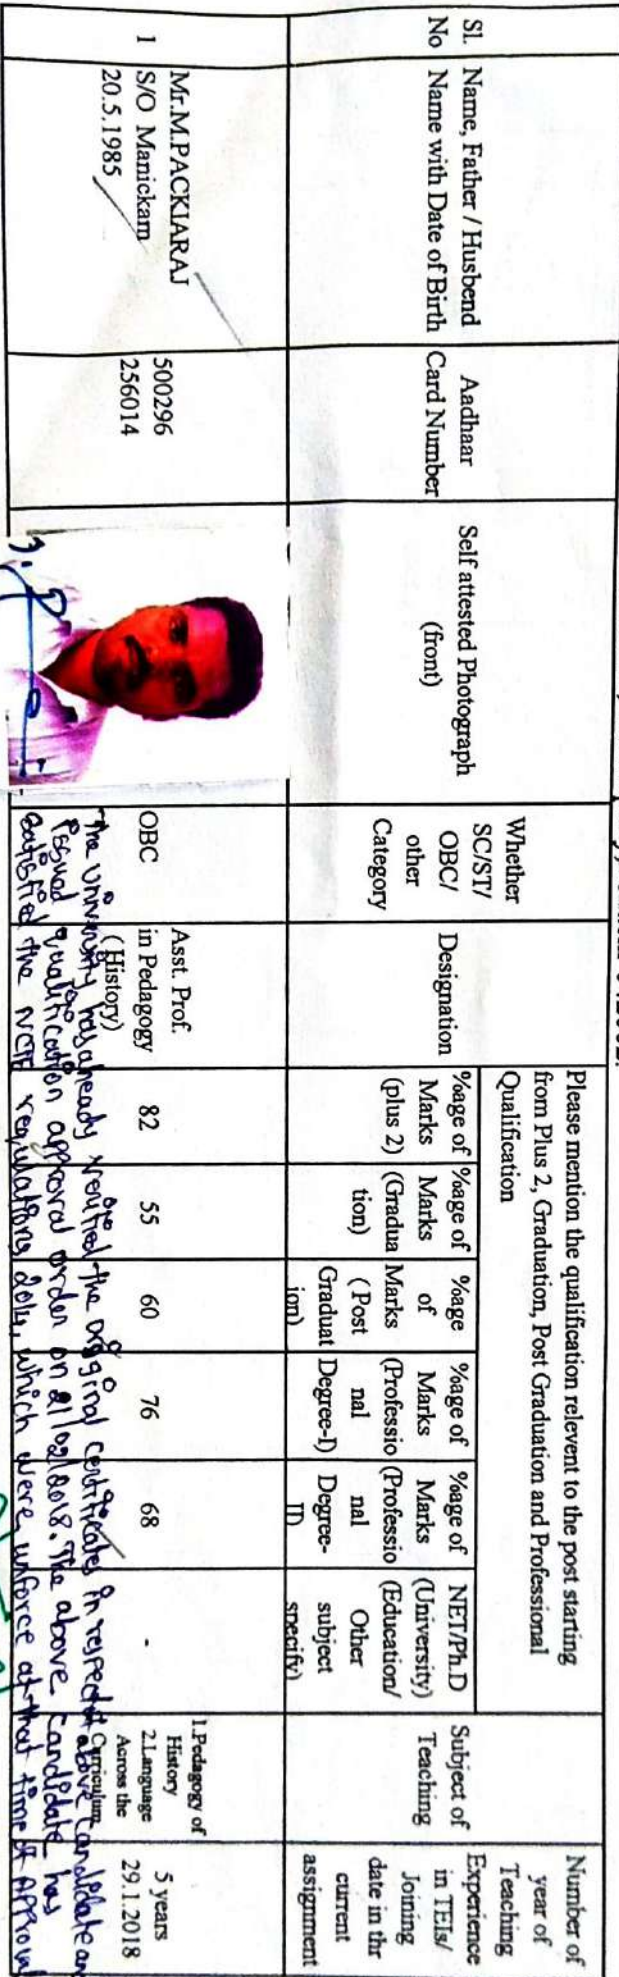 Sl.
No
Name, Father / Husbend
Name with Date of Birth
Aadhaar
Card Number
Self attested Photograph
(front)
Whether
SC/ST/
OBC/
other
Category
Designation
Please mention the qualification relevent to the post starting
from Plus 2, Graduation, Post Graduation and Professional
Qualification
%age of
Marks
(plus 2)
%age of
Marks
(Gradua
tion)
%age
of
Marks
( Post
Graduat
ion)
%age of
Marks
(Professio
nal
Degree-I)
%age of
Marks
(Professio
nal
Degree-
II)
NET/Ph.D
(University)
(Education/
Other
subject
specify)
Subject of
Teaching
Number of
year of
Teaching
Experience
in TEIs/
Joining
date in thr
current
assignment
1
Mr.M.PACKIARAJ
S/O Manickam
20.5.1985
500296
256014
OBC
Asst. Prof.
in Pedagogy
( History)
82
55
60
76
68
-
1.Pedagogy of
History
2.Language
Across the
Curriculum
5 years
29.1.2018
The University has already verified the original certificates in respect of above candidate and
issued qualification approval order on 21/02/2018. The above candidate has
satisfied the NCTE regulations 2014, which were inforce at that time of Approval